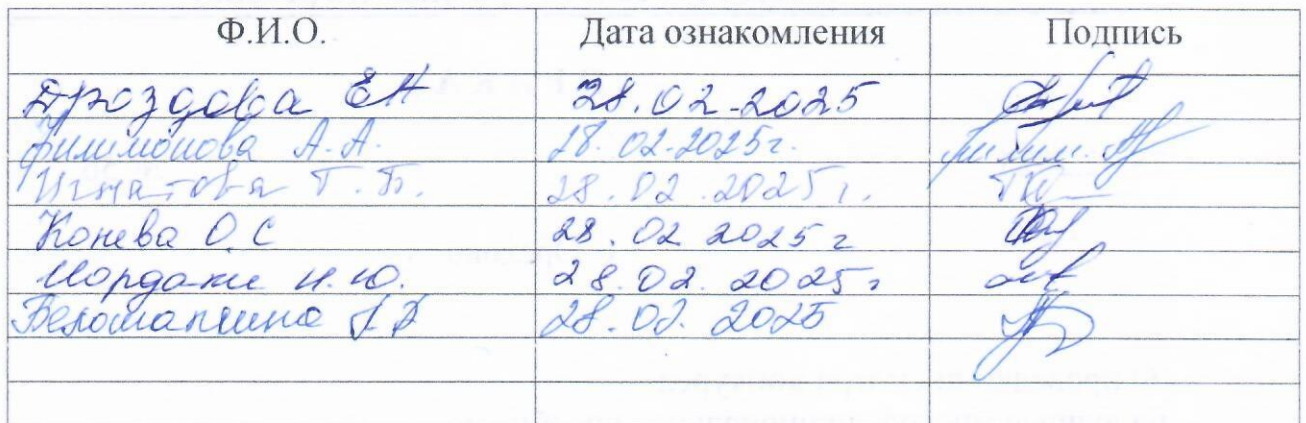 Ф.И.О. Дата ознакомления Подпись
Дроздова Е.Н 28.02.2025
Филимонова А.А. 28.02.2025г.
Игнатова Т.Б. 28.02.2025г.
Конева О.С 28.02 2025г
Иордаки И.Ю. 28.02.2025г
28.02.2025